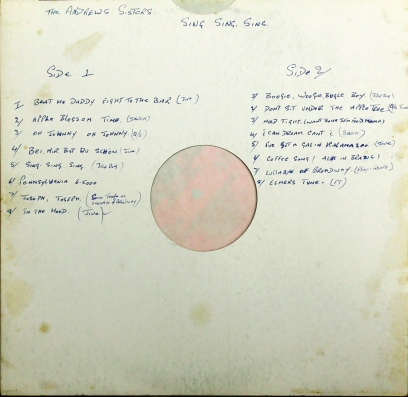 THE ANDREWS SISTERS.
SING SING. SING.
SIDE 1
1/ BEAT ME DADDY EIGHT TO THE BAR (
2/ APPLE BLOSSOM TIME.
3/ OH JOHNNY OH JOHNNY.
4/ BEI, MIR BIST DU SCHON.
5/ SING. SING. SING.
6/ PENNSYLVANIA 6-5000
7/ JOSEPH, JOSEPH.
8/ IN THE MOOD.
SIDE 2/
1/ BOOGIE, WOOGIE BUGLE BOY
2/ DON'T SIT UNDER THE APPLE TREE
3/ HOLD TIGHT.
4/ I CAN DREAM CAN'T I.
5/ I'VE GOT A GAL IN KALAMAZOO
6/ COFFEE SONG/
7/ LULLABY OF BROADWAY.
8/ ELMERS TUNE.